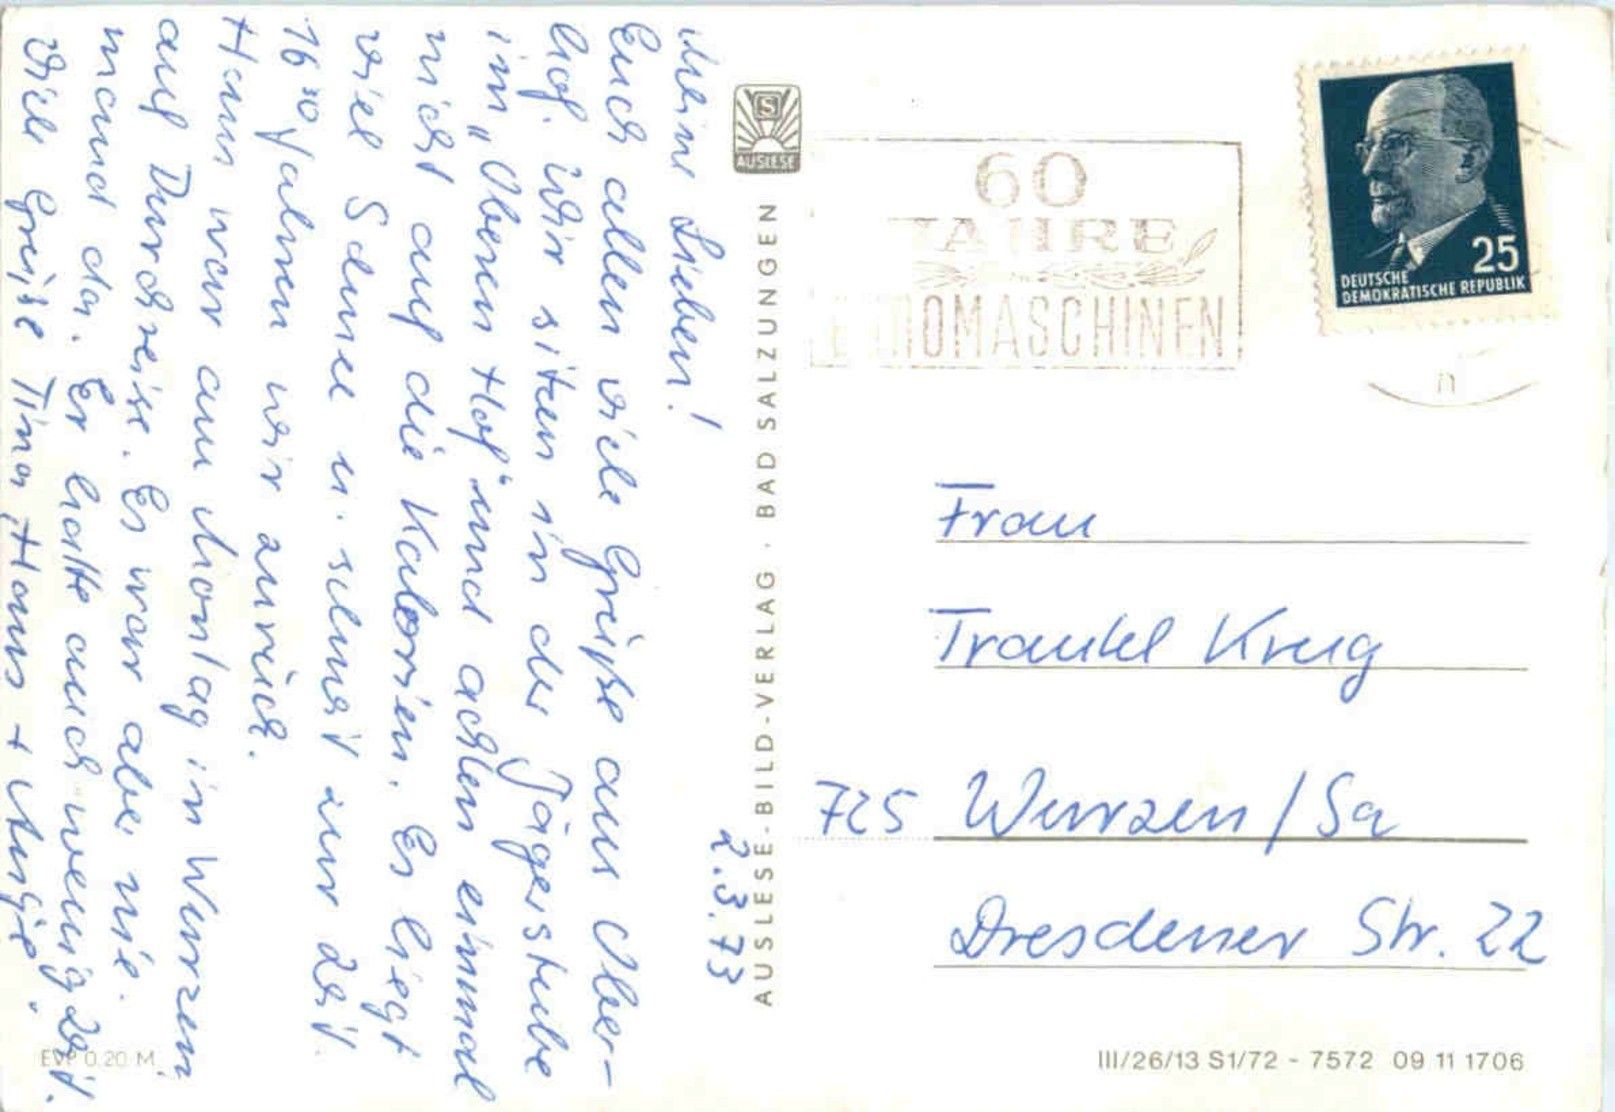 2.3.73
Meine Lieben!
Euch allen viele Grüße aus Ober-
hof. Wir sitzen in der Jägerstube
im „Oberen Hof" und achten einmal
nicht auf die Kalorien. Es liegt
viel Schnee u. schneit zur Zeit.
16³⁰ fahren wir zurück.
Hans war am Montag in Wurzen
auf Durchreise. Es war aber nie-
mand da. Er hatte auch wenig Zeit.
Viele Grüße Tina, Hans + Antje.
EVP 0.20 M
S
AUSLESE
AUSLESE-BILD-VERLAG · BAD SALZUNGEN
60
JAHRE
MASCHINEN
25
DEUTSCHE
DEMOKRATISCHE REPUBLIK
Frau
Traudel Krug
725 Wurzen/Sa
Dresdener Str. 22
III/26/13 S1/72 - 7572 09 11 1706